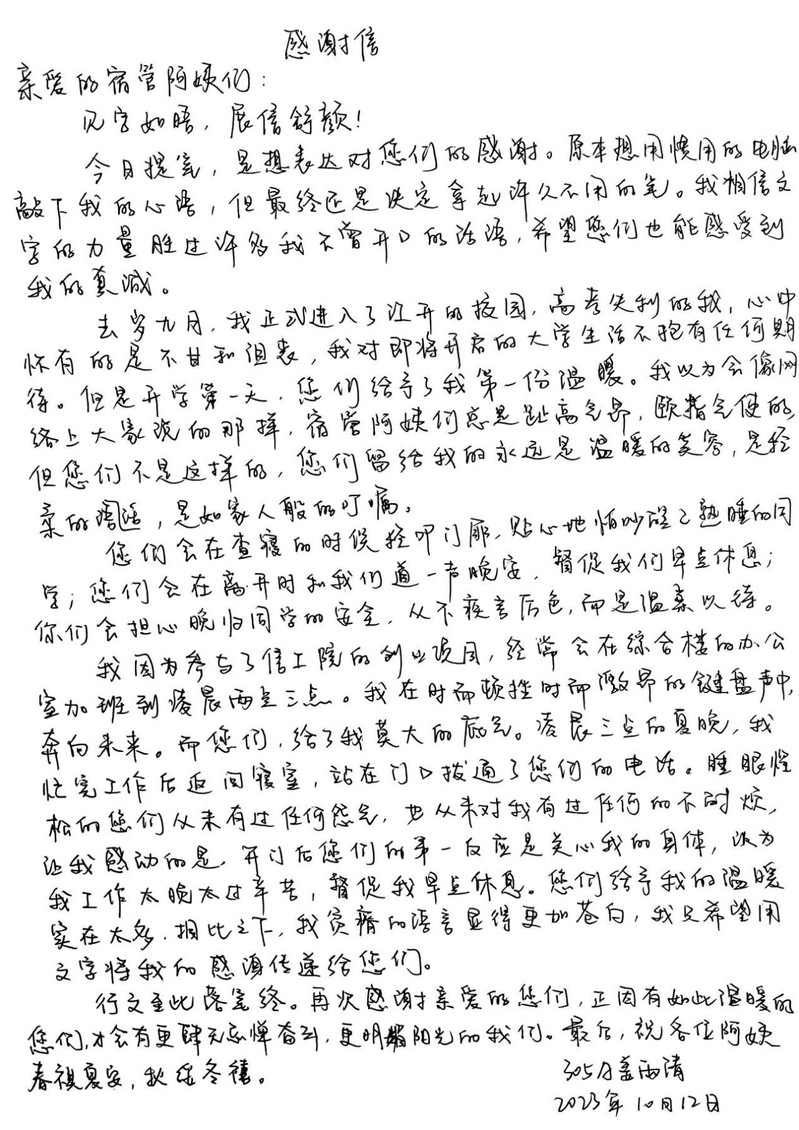 感谢信
亲爱的宿管阿姨们：
见字如晤，展信舒颜！
今日提笔，是想表达对您们的感谢。原本想用惯用的电脑
敲下我的心语，但最终还是决定拿起许久不用的笔。我相信文
字的力量胜过许多我不曾开口的话语，希望您们也能感受到
我的真诚。
去岁九月，我正式进入了江开的校园，高考失利的我，心中
怀有的是不甘和沮丧，我对即将开启的大学生活不抱有任何期
待。但是开学第一天，您们给予了我第一份温暖。我以为会像网
络上大家说的那样，宿管阿姨们总是趾高气昂，颐指气使的，
但您们不是这样的，您们留给我的永远是温暖的笑容，是轻
柔的话语，是如家人般的叮嘱。
您们会在查寝的时候轻叩门扉，贴心地怕吵醒已熟睡的同
学；您们会在离开时和我们道一声晚安，督促我们早点休息；
你们会担心晚归同学的安全，从不疾言厉色，而是温柔以待。
我因为参与了信工院的创业项目，经常会在综合楼的办公
室加班到凌晨两点三点。我在时而顿挫时而激昂的键盘声中，
奔向未来。而您们，给了我莫大的底气。凌晨三点的夏晚，我
忙完工作后返回寝室，站在门口拨通了您们的电话。睡眼惺
松的您们从未有过任何怨气，也从未对我有过任何的不耐烦，
让我感动的是，开门后您们的第一反应是关心我的身体，认为
我工作太晚太过辛苦，督促我早点休息。您们给予我的温暖
实在太多，相比之下，我贫瘠的语言显得更加苍白，我只希望用
文字将我的感谢传递给您们。
行文至此落笔终。再次感谢亲爱的您们，正因有如此温暖的
您们，才会有更肆无忌惮奋斗，更明媚阳光的我们。最后，祝各位阿姨
春祺夏安，秋绥冬禧。
305分 雨清
2023年10月12日